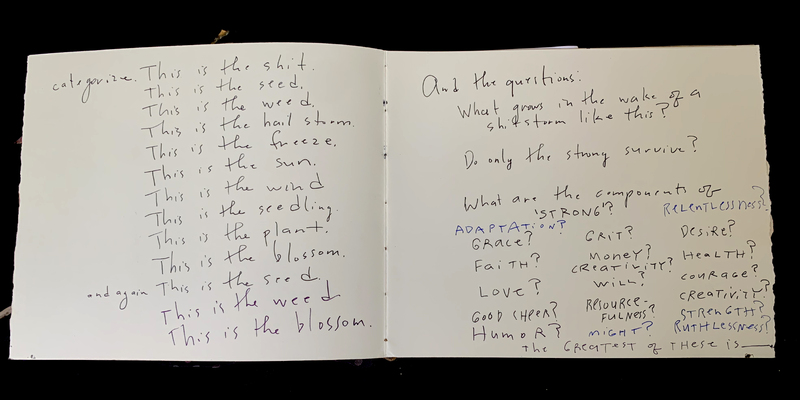 categorize. This is the shit.
This is the seed.
This is the weed.
This is the hail storm.
This is the freeze.
This is the sun.
This is the wind
This is the seedling.
This is the plant.
This is the blossom.
and again This is the seed.
This is the weed
This is the blossom.
And the questions:
What grows in the wake of a
shitstorm like this?
Do only the strong survive?
What are the components of
'STRONG'? RELENTLESSNESS?
ADAPTATION?
GRACE? GRIT? DESIRE?
FAITH? MONEY? HEALTH?
CREATIVITY?
LOVE? WILL? COURAGE?
GOOD CHEER? RESOURCE- CREATIVITY?
FULNESS? STRENGTH?
HUMOR? MIGHT? RUTHLESSNESS?
THE GREATEST OF THESE IS